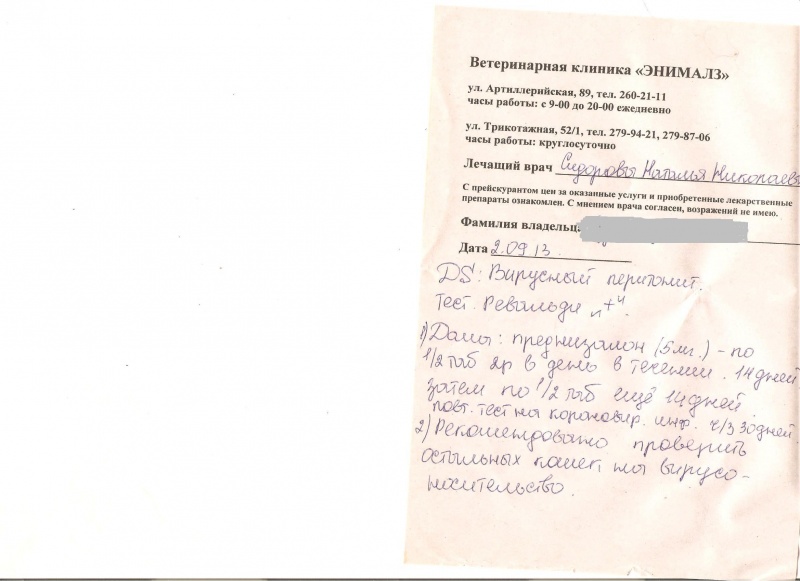 Ветеринарная клиника «ЭНИМАЛЗ»
ул. Артиллерийская, 89, тел. 260-21-11
часы работы: с 9-00 до 20-00 ежедневно
ул. Трикотажная, 52/1, тел. 279-94-21, 279-87-06
часы работы: круглосуточно
Лечащий врач Сидоровы Наталья Николаевы
С прейскурантом цен за оказанные услуги и приобретенные лекарственные
препараты ознакомлен. С мнением врача согласен, возражений не имею.
Фамилия владельца
Дата 2.09 13.
DS: Вирусный перитонит.
Тест. Ревальди
1) Дома: преднизалон (5мг.) - по
1/2 таб 2р в день в течении. 14 дней
затем по 1/2 таб ещё 14 дней.
повт. тест на короновир. инф. ч/з 30 дней.
2) Рекомендовано проверить
остльных кошек на вирусо-
носительство.